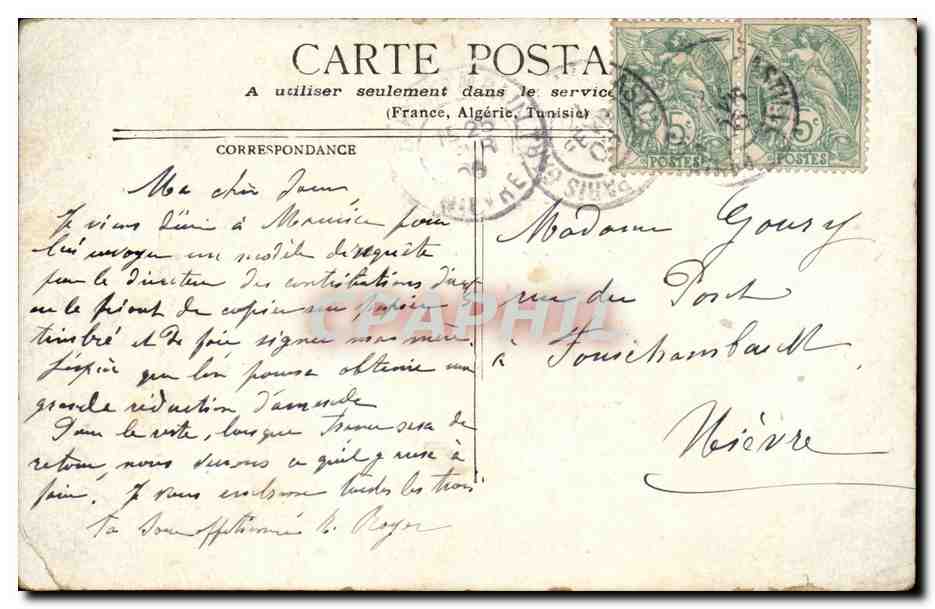 CARTE POSTA
A utiliser seulement dans le service
(France, Algérie, Tunisie)
CORRESPONDANCE
5c 5c
POSTES POSTES
PARIS
CPAPHIL
Ma chère
Je viens d'écrire à Maurice pour
lui envoyer un modèle de requête
pour le directeur des contributions
en le priant de copier sur papier
timbré et de faire signer mes mère.
J'espère que l'on pourra obtenir une
grande réduction d'amende
Pour le reste, lorsque France sera de
retour, nous verrons ce qu'il y aura à
faire. Je vous embrasse toutes les trois
ta affectionnée Royer
Madame Goury
rue du Port
à Fourchambault
Nièvre